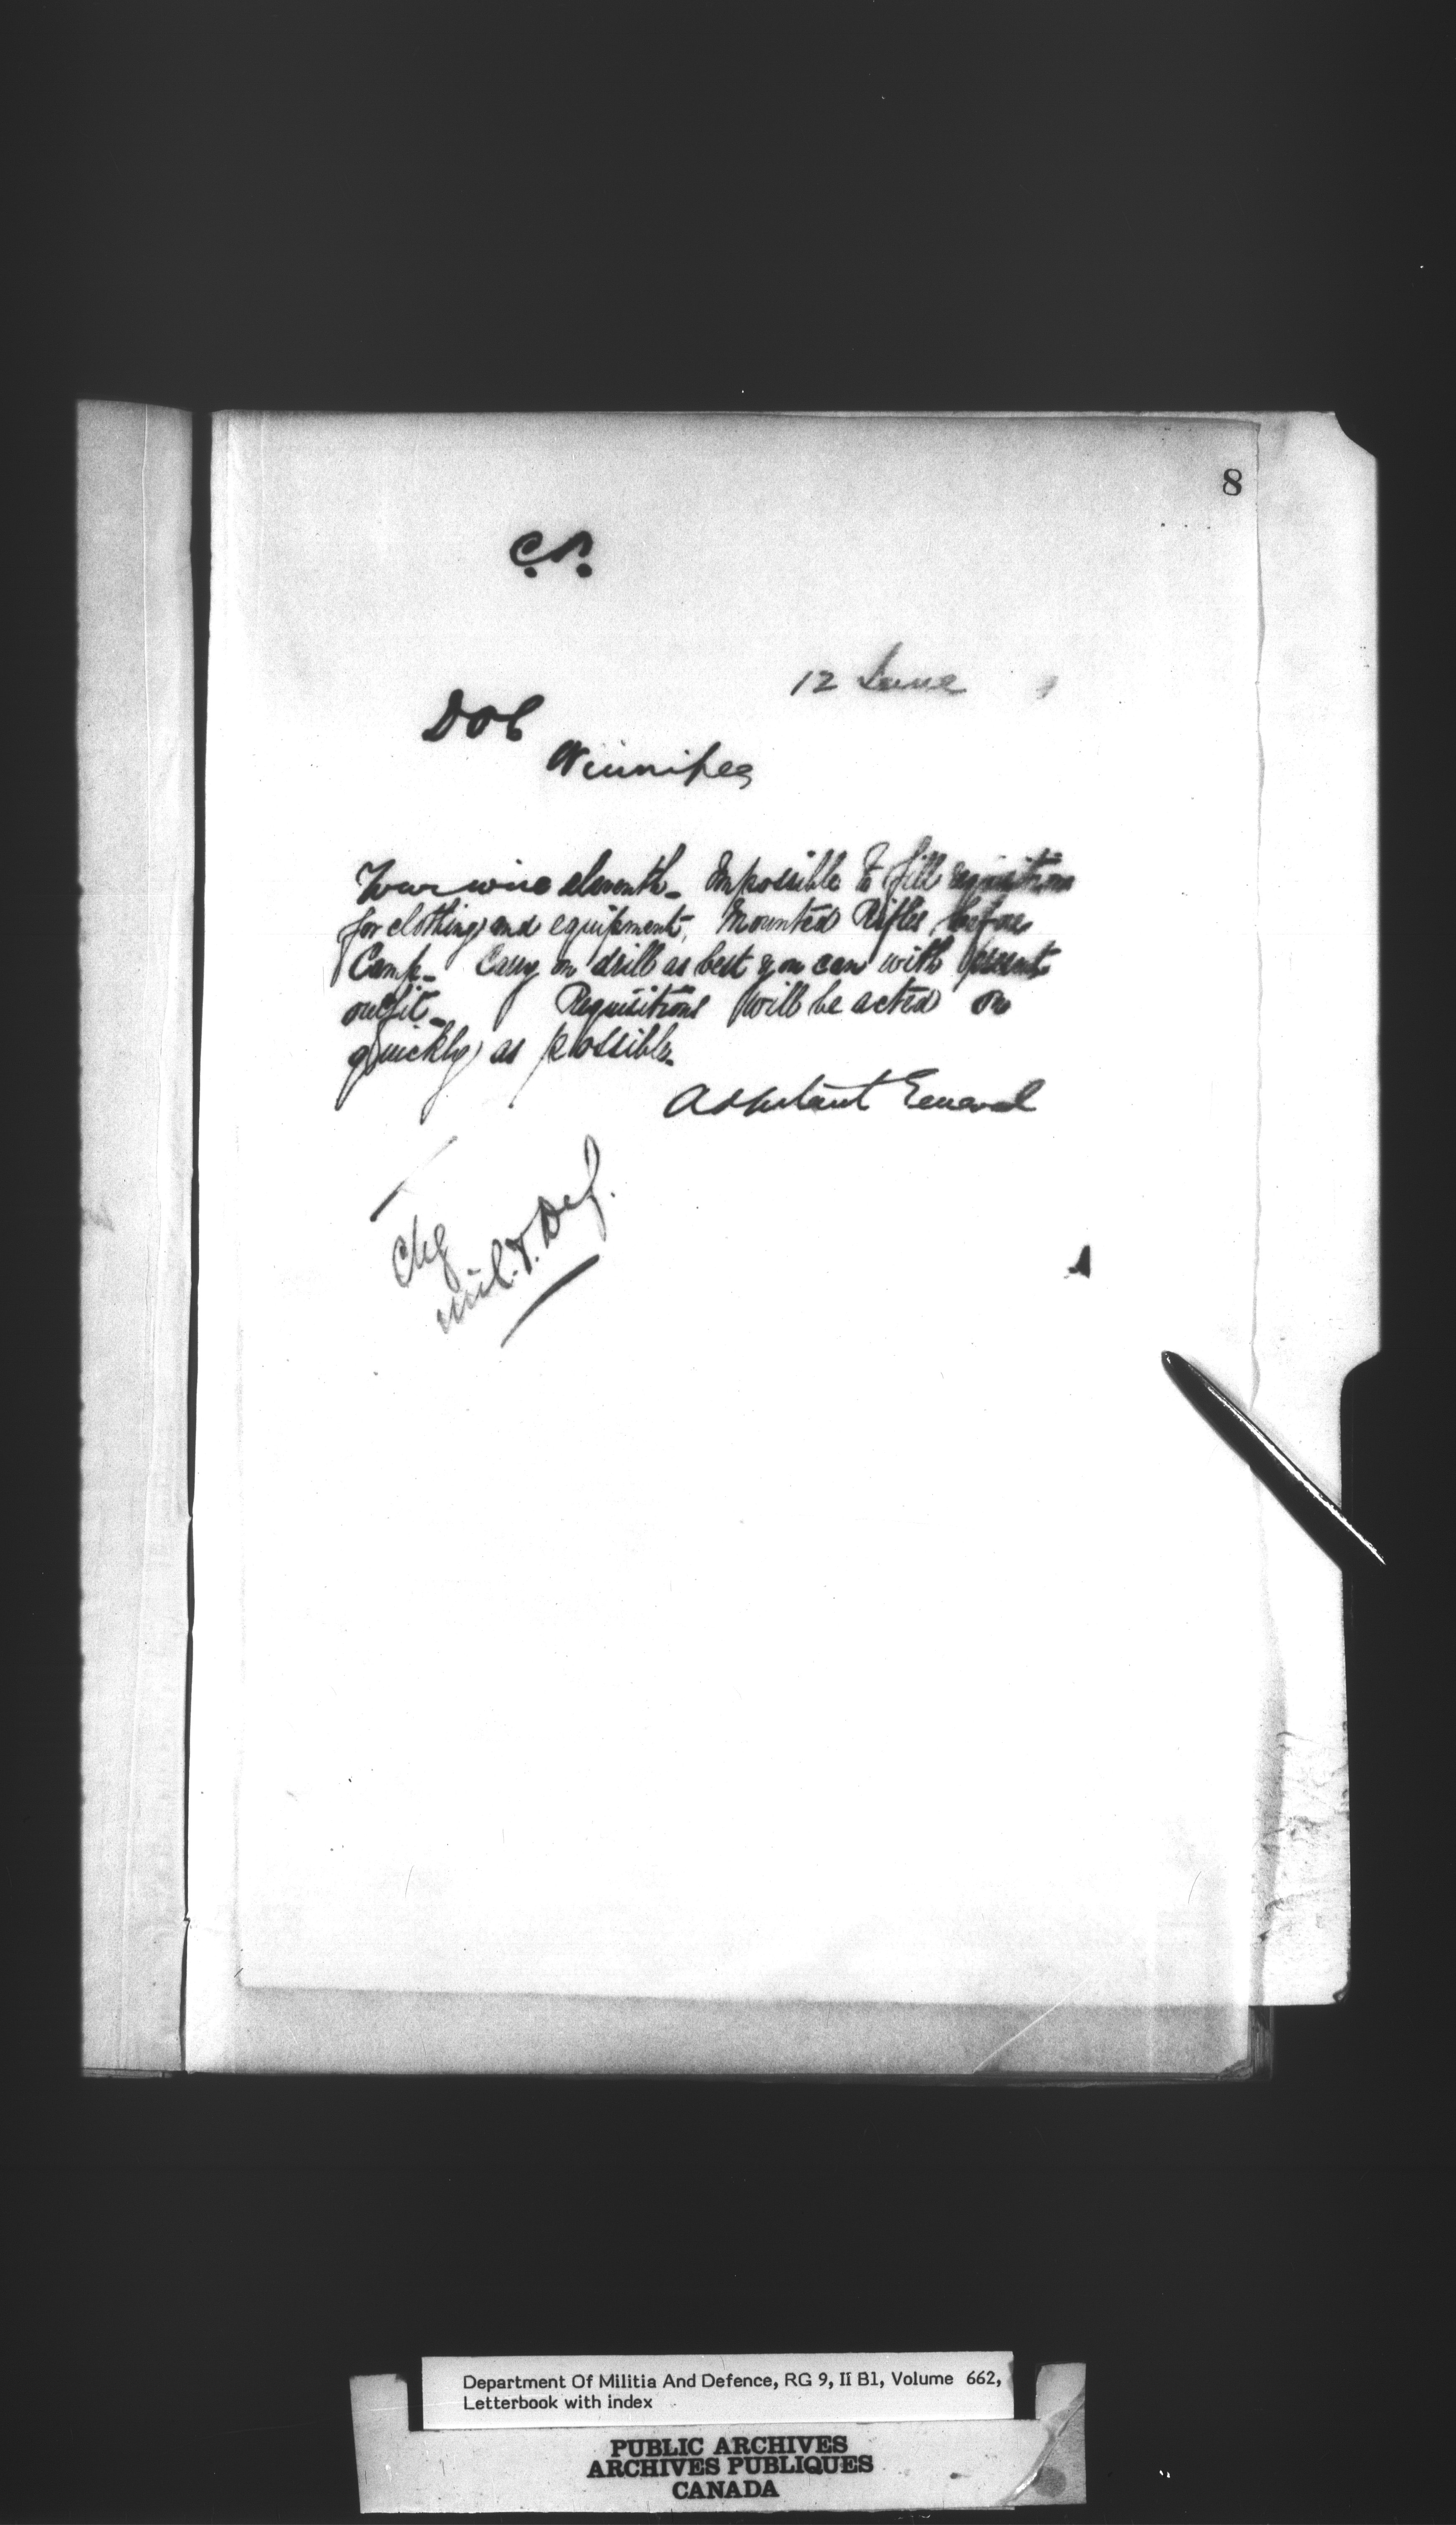 8
C.P.
12 June
DOC
Winnipeg
Your wire eleventh. Impossible to fill requisitions
for clothing and equipment, Mounted Rifles before
Camp. Carry on drill as best you can with present
outfit. Requisitions will be acted on
quickly as possible.
Adjutant General
Chg
Mil. & Def.
Department Of Militia And Defence, RG 9, II B1, Volume 662,
Letterbook with index
PUBLIC ARCHIVES
ARCHIVES PUBLIQUES
CANADA